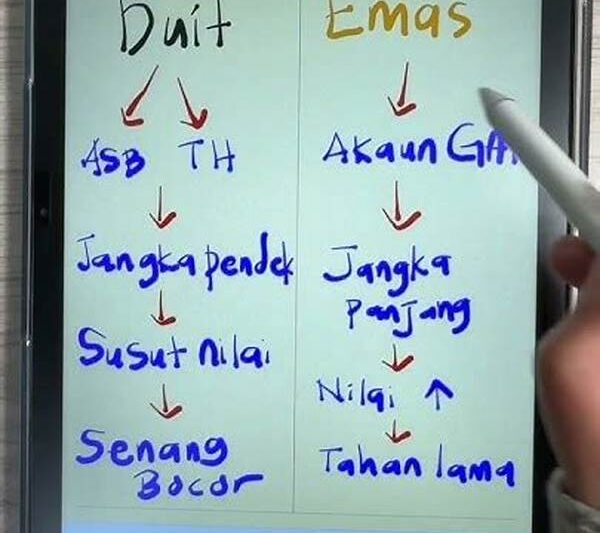 Duit
ASB TH
Jangka pendek
Susut nilai
Senang
Bocor
Emas
Akaun
Jangka
panjang
Nilai ↑
Tahan lama